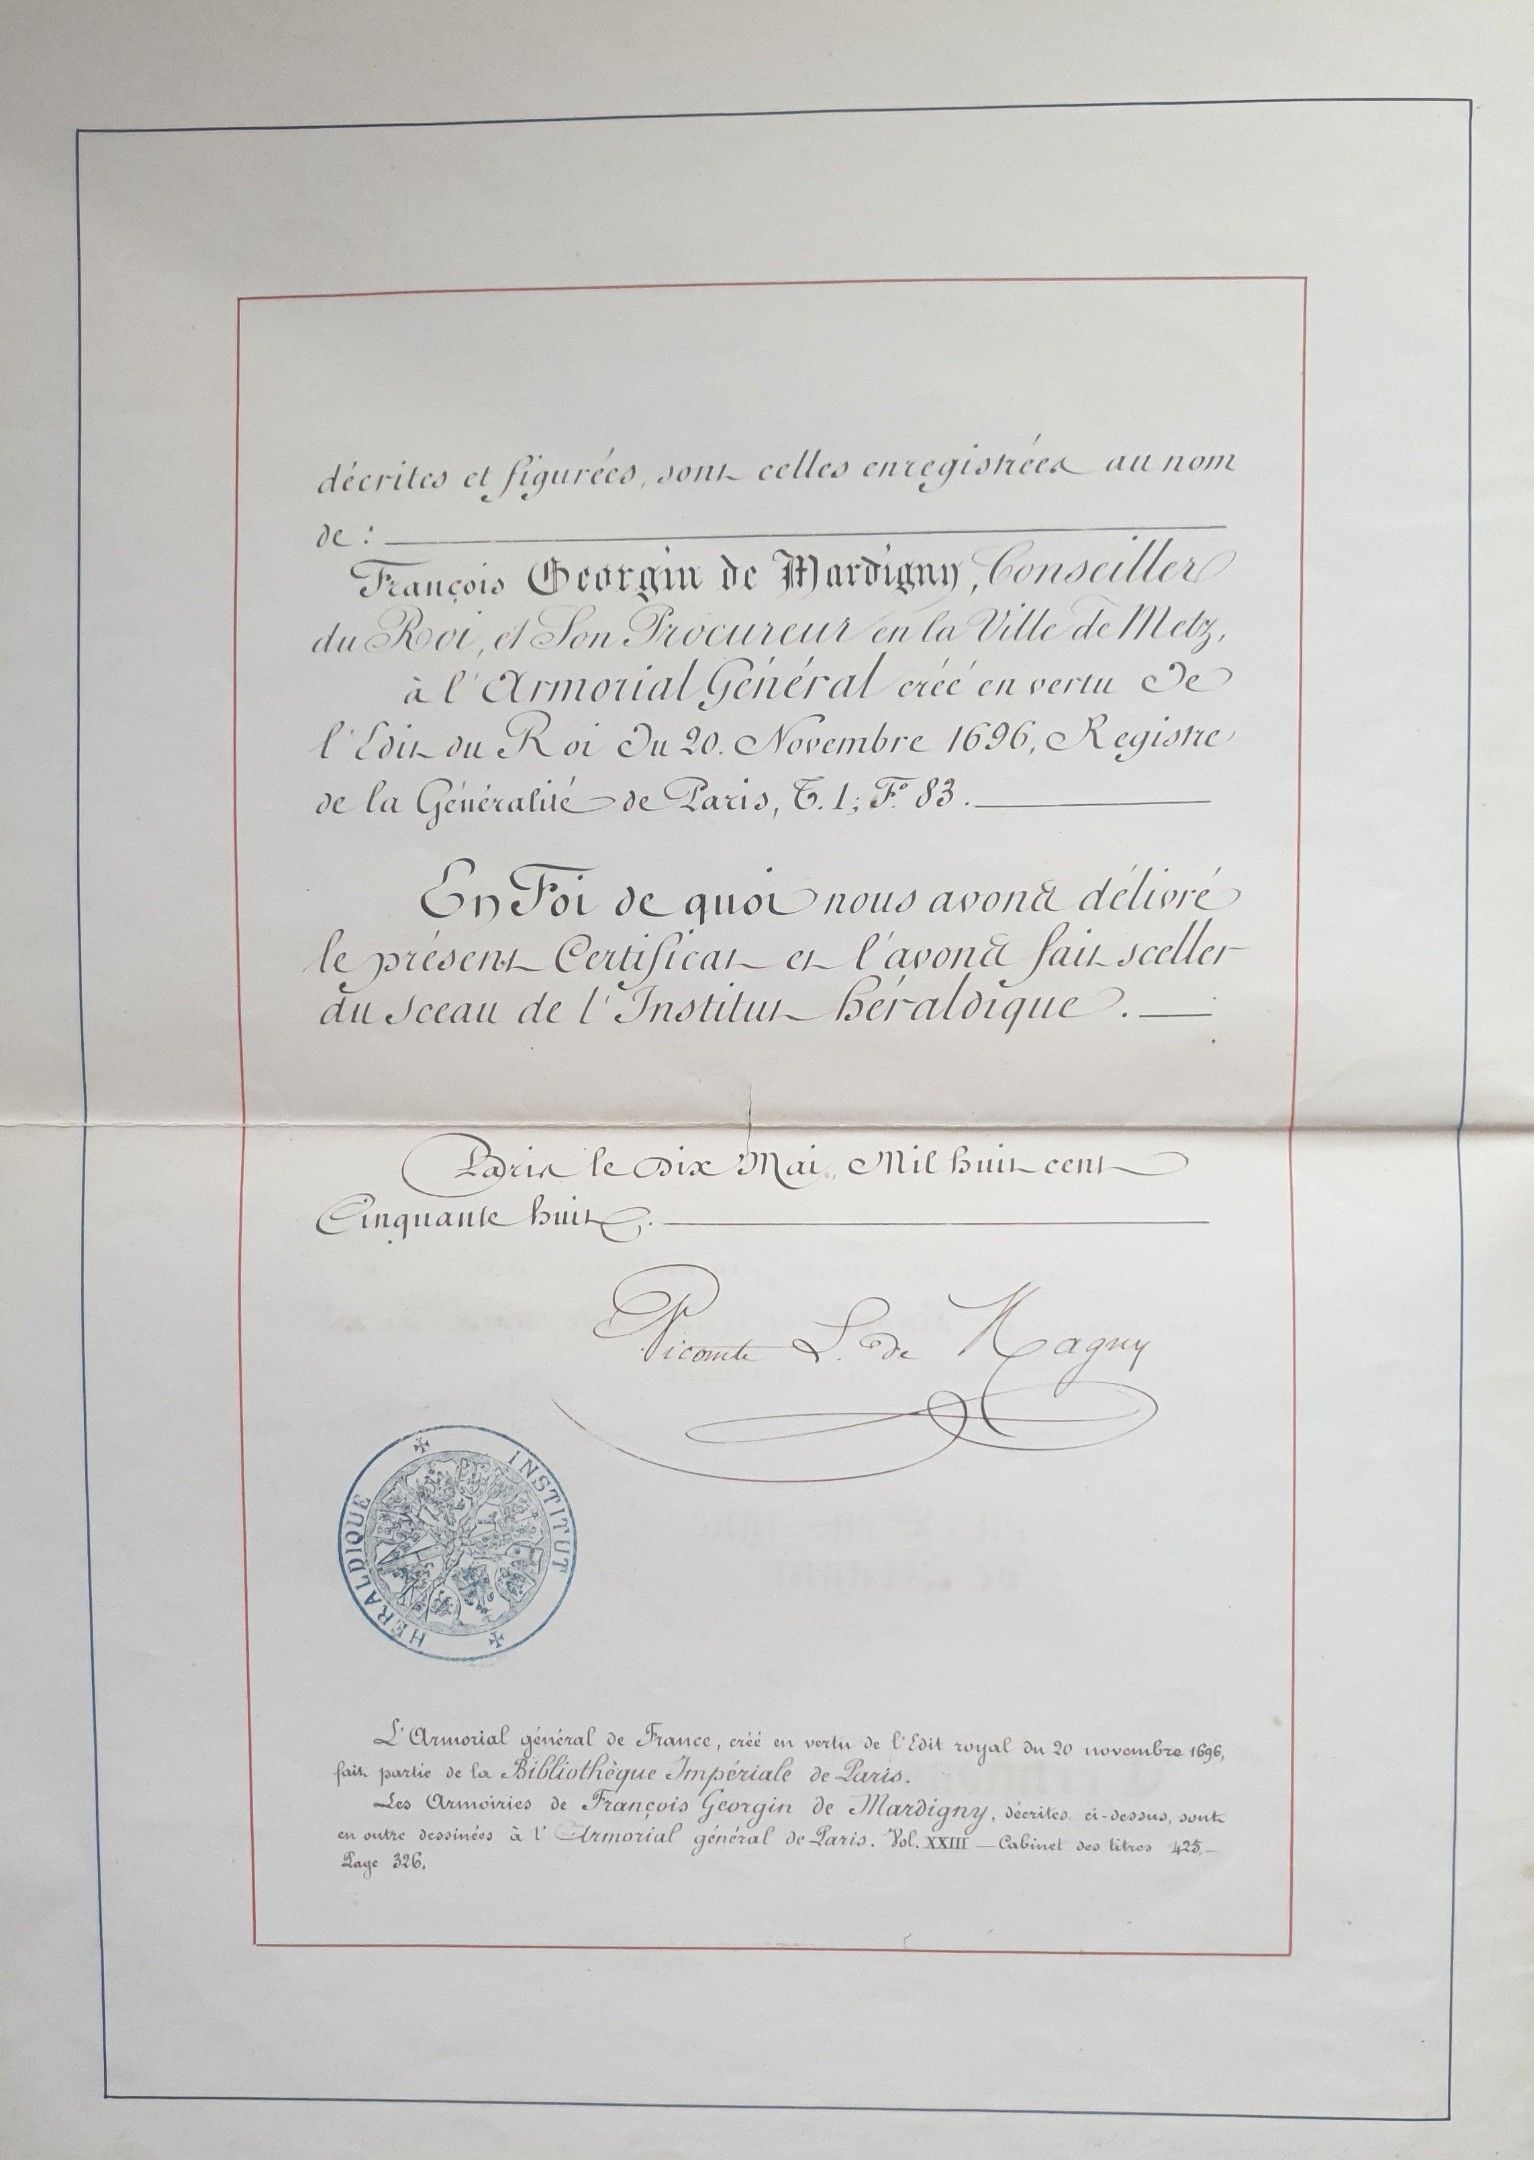 décrites et figurées, sont celles enregistrées au nom
de :
François Georgin de Mardigny, Conseiller
du Roi, et Son Procureur en la Ville de Metz,
à l'Armorial Général créé en vertu de
l'Edit du Roi du 20. Novembre 1696, Registre
de la Généralité de Paris, T. 1; F.° 83.
En Foi de quoi nous avons délivré
le présent Certificat et l'avons fait sceller
du sceau de l'Institut héraldique.
Paris le dix Mai, Mil huit cent
Cinquante huit.
Vicomte L. de Magny
INSTITUT HERALDIQUE
L'Armorial général de France, créé en vertu de l'Edit royal du 20 novembre 1696,
fait partie de la Bibliothèque Impériale de Paris.
Les Armoiries de François Georgin de Mardigny, décrites ci-dessus, sont
en outre dessinées à l'Armorial général de Paris. Vol. XXIII — Cabinet des titres 425. —
Page 326.